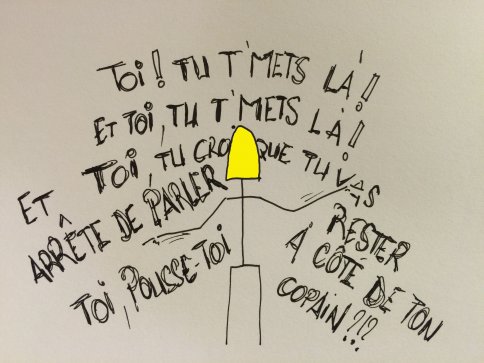 TOI! TU T'METS LÀ!
ET TOI, TU T'METS LÀ!
ET TOI, TU CRO QUE TU VAS
RESTER
À CÔTE DE TON
COPAIN?!?
ARRÊTE DE PARLER
TOI, POUSSE-TOI